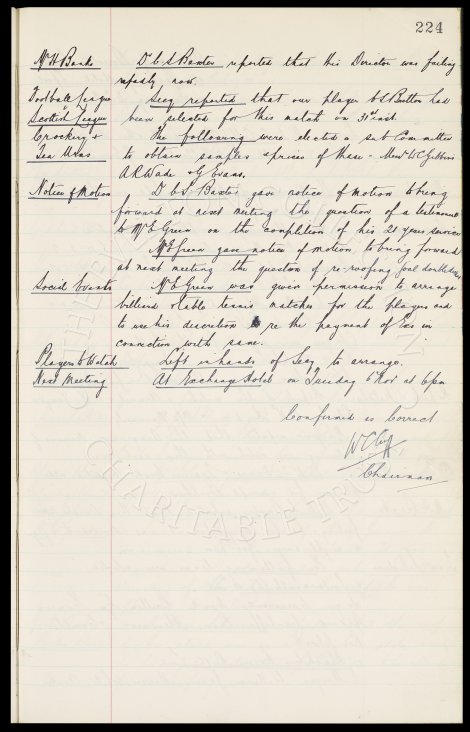 224
Mr H Banks Dr C S Baxter reported that this Director was failing
rapidly now.
Football League Secy reported that our player C S Britton had
Scottish League been selected for this match on 31st inst.
Crockery & The following were elected a sub Committee
Tea Urns to obtain samples & prices of these - Messrs W C Gibbins
A R Wade & G Evans.
Notice of Motion Dr C S Baxter gave notice of motion to bring
forward at next meeting the question of a testimonial
to Mr E Green on the completion of his 21 years service
Mr E Green gave notice of motion, to bring forward
at next meeting the question of re-roofing
Social Events Mr E Green was given permission to arrange
billiard & table tennis matches for the players and
to use his discretion re the payment of Exs in
connection with same.
Players to Watch Left in hands of Secy to arrange.
Next Meeting At Exchange Hotel on Tuesday 6 Nov at 6pm
Confirmed as Correct
W C Cuff
Chairman
THE EVERTON
CHARITABLE TRUST